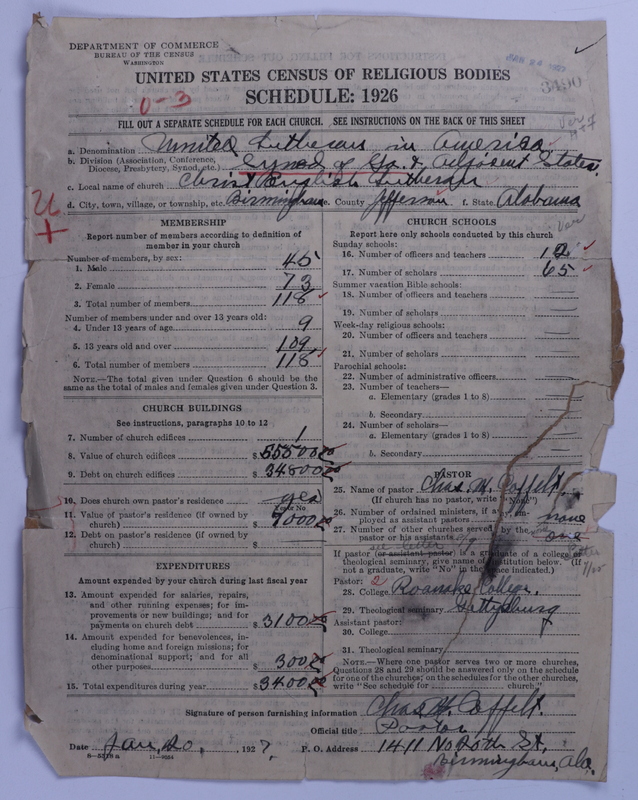 DEPARTMENT OF COMMERCE
BUREAU OF THE CENSUS
WASHINGTON
UNITED STATES CENSUS OF RELIGIOUS BODIES
SCHEDULE: 1926
0-3
3490
FILL OUT A SEPARATE SCHEDULE FOR EACH CHURCH. SEE INSTRUCTIONS ON THE BACK OF THIS SHEET
a. Denomination United Lutheran in America
b. Division (Association, Conference, Diocese, Presbytery, Synod, etc.) Synod of Ga. & Adjacent States.
c. Local name of church Christ English Lutheran
d. City, town, village, or township, etc. Birmingham e. County Jefferson f. State Alabama
MEMBERSHIP
Report number of members according to definition of
member in your church
Number of members, by sex:
1. Male 45
2. Female 73
3. Total number of members 118
Number of members under and over 13 years old:
4. Under 13 years of age 9
5. 13 years old and over 109
6. Total number of members 118
NOTE.—The total given under Question 6 should be the
same as the total of males and females given under Question 3.
CHURCH BUILDINGS
See instructions, paragraphs 10 to 12
7. Number of church edifices 1
8. Value of church edifices $ 55500.00
9. Debt on church edifices $ 34800.00
10. Does church own pastor's residence yes
Yes or No
11. Value of pastor's residence (if owned by
church) $ 7000.00
12. Debt on pastor's residence (if owned by
church) $
EXPENDITURES
Amount expended by your church during last fiscal year
13. Amount expended for salaries, repairs,
and other running expenses; for im-
provements or new buildings; and for
payments on church debt $ 3100.00
14. Amount expended for benevolences, in-
cluding home and foreign missions; for
denominational support; and for all
other purposes $ 300.00
15. Total expenditures during year $ 3400.00
CHURCH SCHOOLS
Report here only schools conducted by this church
Sunday schools:
16. Number of officers and teachers 12
17. Number of scholars 65
Summer vacation Bible schools:
18. Number of officers and teachers
19. Number of scholars
Week-day religious schools:
20. Number of officers and teachers
21. Number of scholars
Parochial schools:
22. Number of administrative officers
23. Number of teachers—
a. Elementary (grades 1 to 8)
b. Secondary
24. Number of scholars—
a. Elementary (grades 1 to 8)
b. Secondary
PASTOR
25. Name of pastor Chas. H. Coffelt.
(If church has no pastor, write "None")
26. Number of ordained ministers, if any, em-
ployed as assistant pastors none
27. Number of other churches served by the
pastor or his assistants one
see letter
If pastor (or assistant pastor) is a graduate of a college or
theological seminary, give name of institution below. (If
not a graduate, write "No" in the space indicated.)
Pastor: 2
28. College Roanoke College.
29. Theological seminary Gettysburg
Assistant pastor:
30. College
31. Theological seminary
NOTE.—Where one pastor serves two or more churches,
Questions 28 and 29 should be answered only on the schedule
for one of the churches; on the schedules for the other churches,
write "See schedule for church."
Signature of person furnishing information Chas. H. Coffelt.
Official title Pastor
Date Jan. 20, 1927. P. O. Address 1411 No 20th St.,
Birmingham, Ala.
8—5218a 11—9024